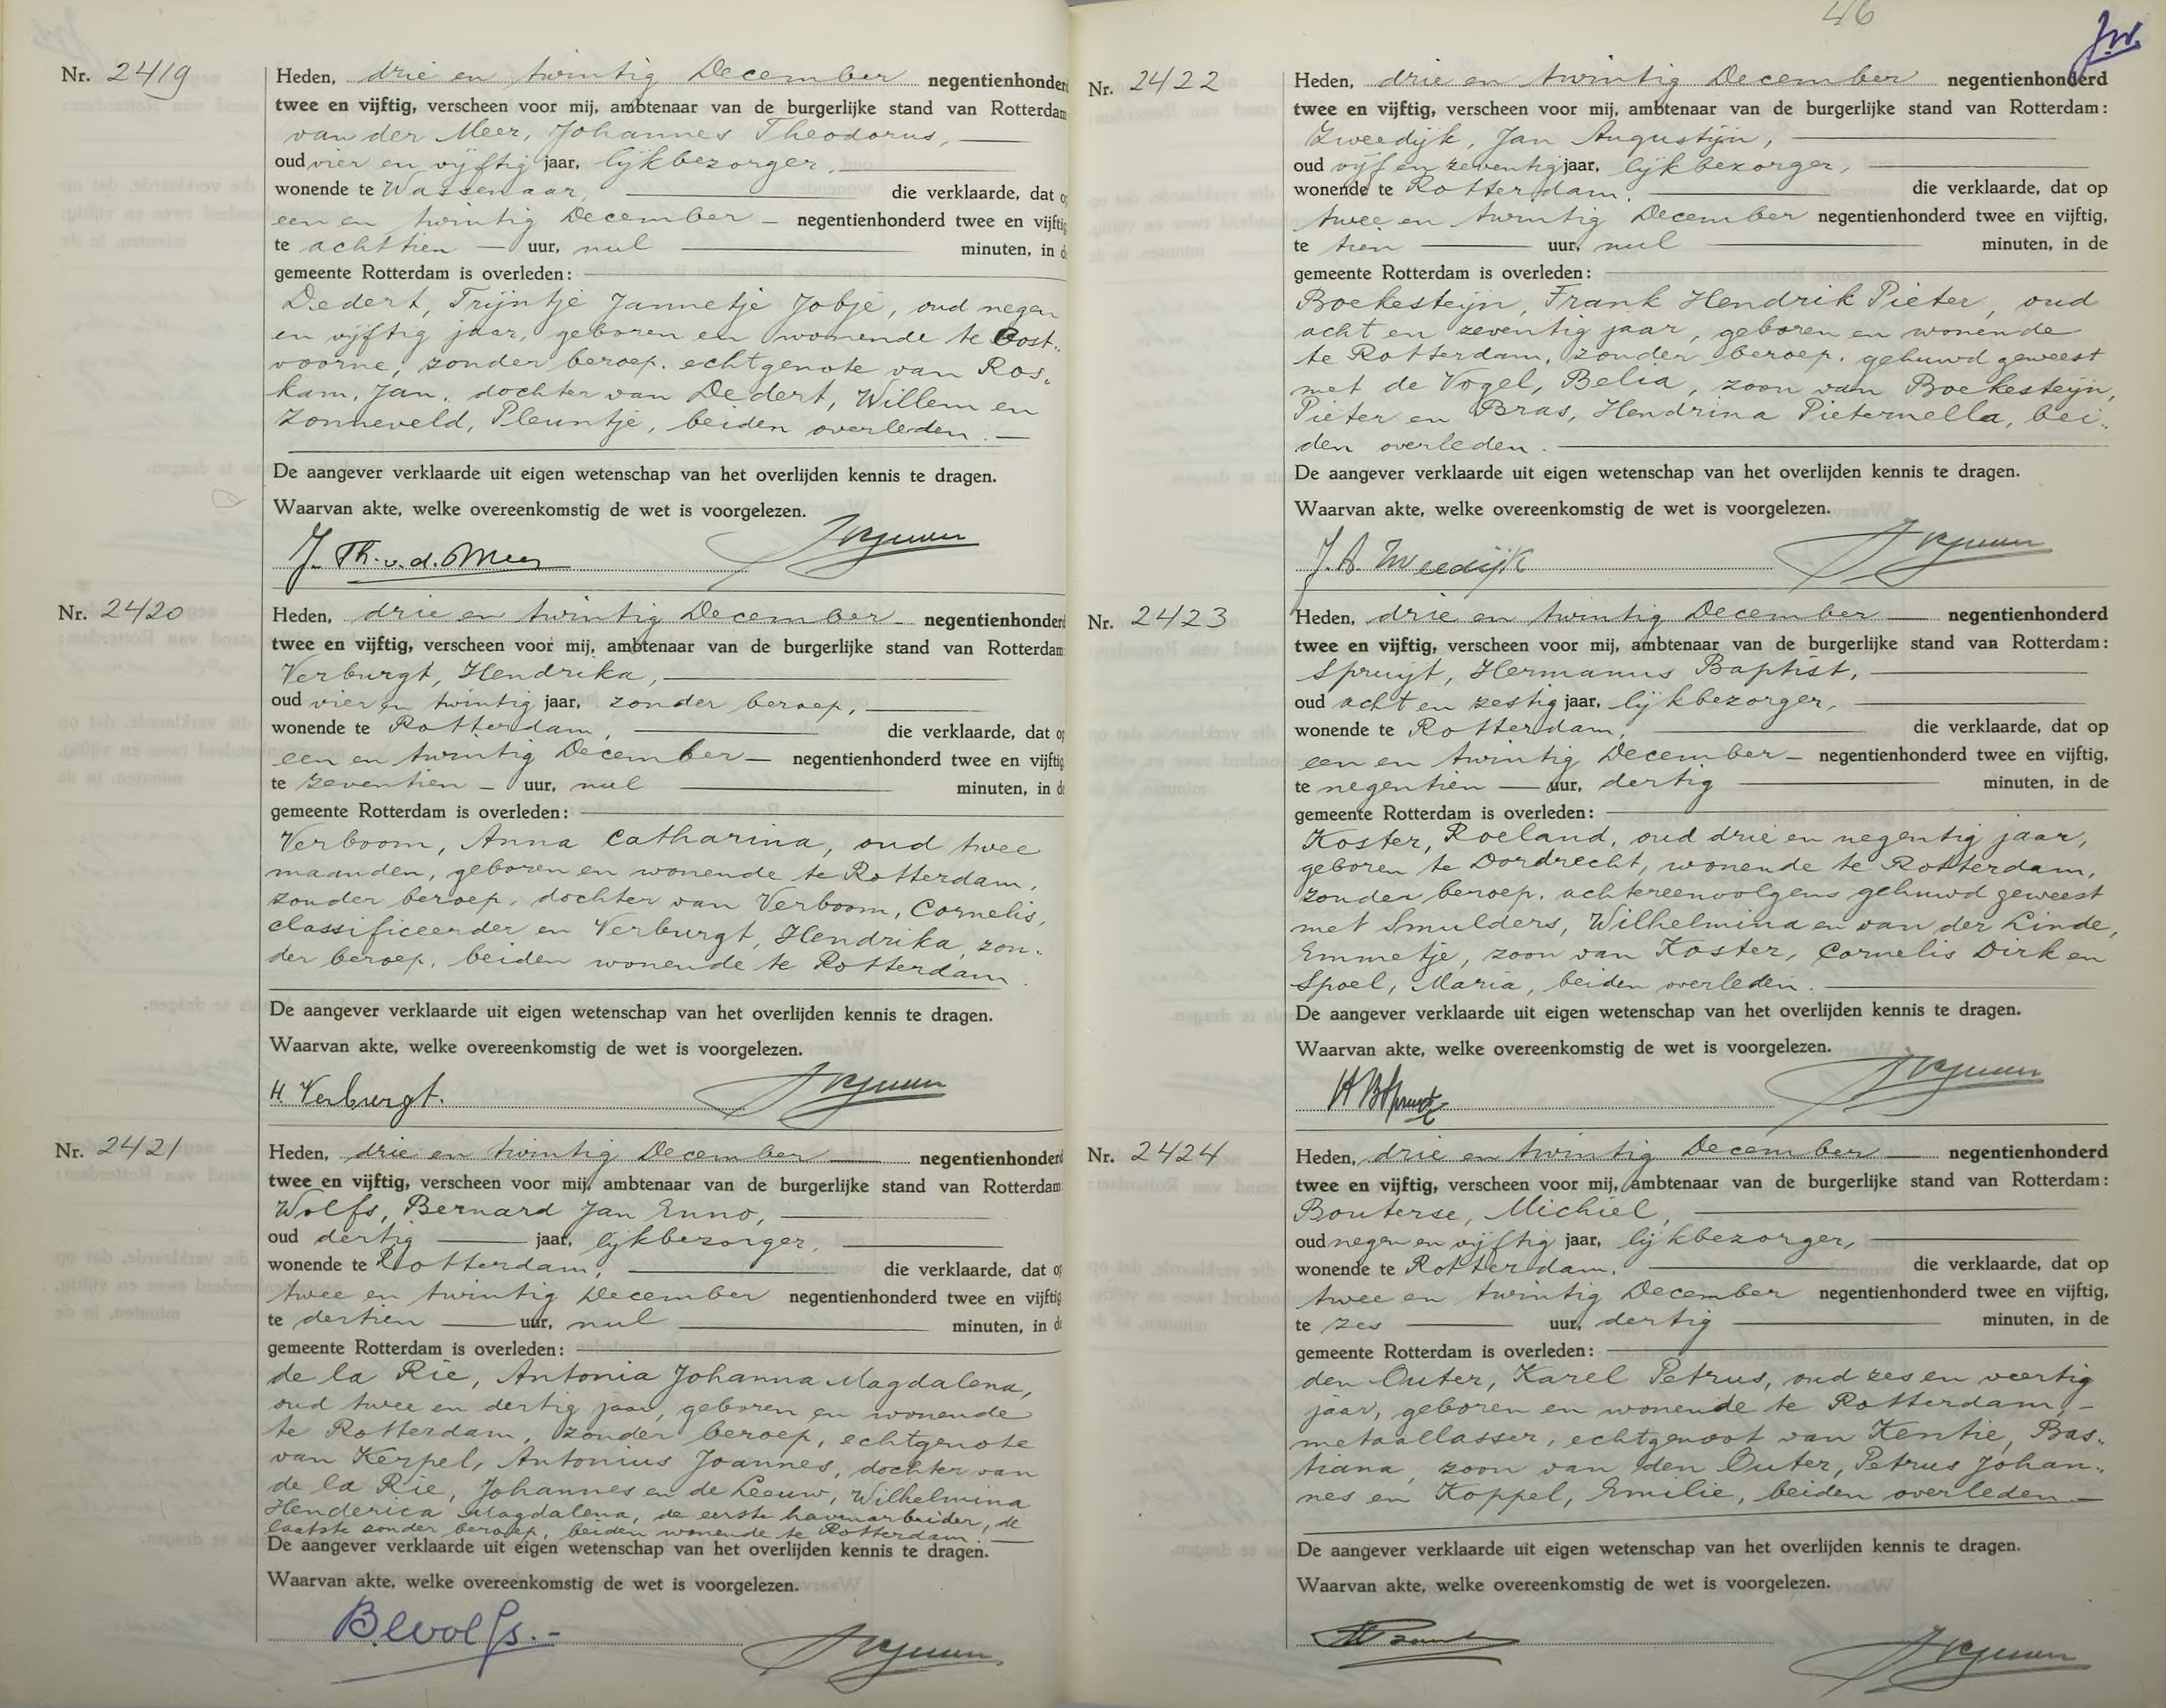 Nr. 2419
Heden, drie en twintig December negentienhonderd
twee en vijftig, verscheen voor mij, ambtenaar van de burgerlijke stand van Rotterdam
van der Meer, Johannes Theodorus,
oud vier en vijftig jaar, lijkbezorger,
wonende te Wassenaar, die verklaarde, dat op
een en twintig December negentienhonderd twee en vijftig
te achttien uur, nul minuten, in de
gemeente Rotterdam is overleden:
Dedert, Trijntje Jannetje Jobje, oud negen
en vijftig jaar, geboren en wonende te Oost-
voorne, zonder beroep, echtgenote van Ros-
kam, Jan, dochter van Dedert, Willem en
Zonneveld, Pleuntje, beiden overleden.
De aangever verklaarde uit eigen wetenschap van het overlijden kennis te dragen.
Waarvan akte, welke overeenkomstig de wet is voorgelezen.
J. Th. v. d. Meer
Nr. 2420
Heden, drie en twintig December negentienhonderd
twee en vijftig, verscheen voor mij, ambtenaar van de burgerlijke stand van Rotterdam
Verburgt, Hendrika,
oud vier en twintig jaar, zonder beroep,
wonende te Rotterdam, die verklaarde, dat op
een en twintig December negentienhonderd twee en vijftig
te zeventien uur, nul minuten, in de
gemeente Rotterdam is overleden:
Verboom, Anna Catharina, oud twee
maanden, geboren en wonende te Rotterdam,
zonder beroep, dochter van Verboom, Cornelis,
classificeerder en Verburgt, Hendrika, zon-
der beroep, beiden wonende te Rotterdam.
De aangever verklaarde uit eigen wetenschap van het overlijden kennis te dragen.
Waarvan akte, welke overeenkomstig de wet is voorgelezen.
H. Verburgt.
Nr. 2421
Heden, drie en twintig December negentienhonderd
twee en vijftig, verscheen voor mij, ambtenaar van de burgerlijke stand van Rotterdam
Wolfs, Bernard Jan Enno,
oud dertig jaar, lijkbezorger,
wonende te Rotterdam, die verklaarde, dat op
twee en twintig December negentienhonderd twee en vijftig
te dertien uur, nul minuten, in de
gemeente Rotterdam is overleden:
de la Rie, Antonia Johanna Magdalena,
oud twee en dertig jaar, geboren en wonende
te Rotterdam, zonder beroep, echtgenote
van Kerpel, Antonius Joannes, dochter van
de la Rie, Johannes en de Leeuw, Wilhelmina
Henderica Magdalena, de eerste havenarbeider, de
laatste zonder beroep, beiden wonende te Rotterdam.
De aangever verklaarde uit eigen wetenschap van het overlijden kennis te dragen.
Waarvan akte, welke overeenkomstig de wet is voorgelezen.
B. Wolfs.-
46
Nr. 2422
Heden, drie en twintig December negentienhonderd
twee en vijftig, verscheen voor mij, ambtenaar van de burgerlijke stand van Rotterdam:
Zweedijk, Jan Augustijn,
oud vijf en zeventig jaar, lijkbezorger,
wonende te Rotterdam, die verklaarde, dat op
twee en twintig December negentienhonderd twee en vijftig,
te tien uur, nul minuten, in de
gemeente Rotterdam is overleden:
Boekesteijn, Frank Hendrik Pieter, oud
acht en zeventig jaar, geboren en wonende
te Rotterdam, zonder beroep, gehuwd geweest
met de Vogel, Belia, zoon van Boekesteijn,
Pieter en Bras, Hendrina Pieternella, bei-
den overleden.
De aangever verklaarde uit eigen wetenschap van het overlijden kennis te dragen.
Waarvan akte, welke overeenkomstig de wet is voorgelezen.
J. A. Zweedijk
Nr. 2423
Heden, drie en twintig December negentienhonderd
twee en vijftig, verscheen voor mij, ambtenaar van de burgerlijke stand van Rotterdam:
Spruijt, Hermanus Baptist,
oud acht en zestig jaar, lijkbezorger,
wonende te Rotterdam, die verklaarde, dat op
een en twintig December negentienhonderd twee en vijftig,
te negentien uur, dertig minuten, in de
gemeente Rotterdam is overleden:
Koster, Roeland, oud drie en negentig jaar,
geboren te Dordrecht, wonende te Rotterdam,
zonder beroep, achtereenvolgens gehuwd geweest
met Smulders, Wilhelmina en van der Linde,
Emmetje, zoon van Koster, Cornelis Dirk en
Spoel, Maria, beiden overleden.
De aangever verklaarde uit eigen wetenschap van het overlijden kennis te dragen.
Waarvan akte, welke overeenkomstig de wet is voorgelezen.
H B Spruijt
Nr. 2424
Heden, drie en twintig December negentienhonderd
twee en vijftig, verscheen voor mij, ambtenaar van de burgerlijke stand van Rotterdam:
Bouterse, Michiel,
oud negen en vijftig jaar, lijkbezorger,
wonende te Rotterdam, die verklaarde, dat op
twee en twintig December negentienhonderd twee en vijftig,
te zes uur, dertig minuten, in de
gemeente Rotterdam is overleden:
den Outer, Karel Petrus, oud zes en veertig
jaar, geboren en wonende te Rotterdam,
metaallasser, echtgenoot van Kentie, Bas-
tiana, zoon van den Outer, Petrus Johan-
nes en Koppel, Emilie, beiden overleden
De aangever verklaarde uit eigen wetenschap van het overlijden kennis te dragen.
Waarvan akte, welke overeenkomstig de wet is voorgelezen.